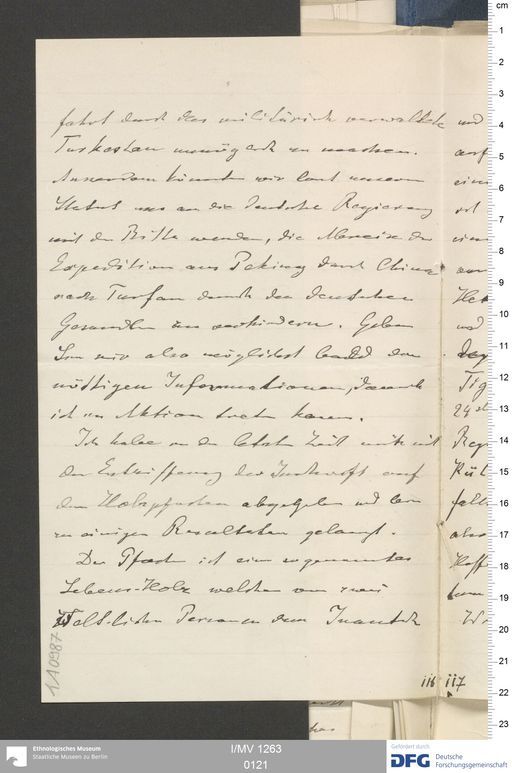 fahrt durch das militärisch verwaltete
Turkestan unmöglich zu machen.
Ausserdem könnten wir laut unserem
Statut uns an die Deutsche Regierung
mit der Bitte wenden, die Abreise der
Expedition aus Peking durch China
nach Turfan durch den deutschen
Gesandten zu verhindern. Geben
Sie mir also möglichst bald den
nöttigen Informationen, damit
ich in Aktion treten kann.
Ich habe in der letzten Zeit mich mit
der Entziffferung der Inschrift auf
dem Holzpfosten abgegeben und bin
zu einigen Resultaten gelangt.
Der Pfosten ist ein sogenanntes
Lebens-Holz welchen von zwei
Personen dem
und
auf
ein
ist
und
24
110987
116 117
Ethnologisches Museum
Staatliche Museen zu Berlin
I/MV 1263
0121
Gefördert durch
DFG Deutsche
Forschungsgemeinschaft
cm
1
2
3
4
5
6
7
8
9
10
11
12
13
14
15
16
17
18
19
20
21
22
23